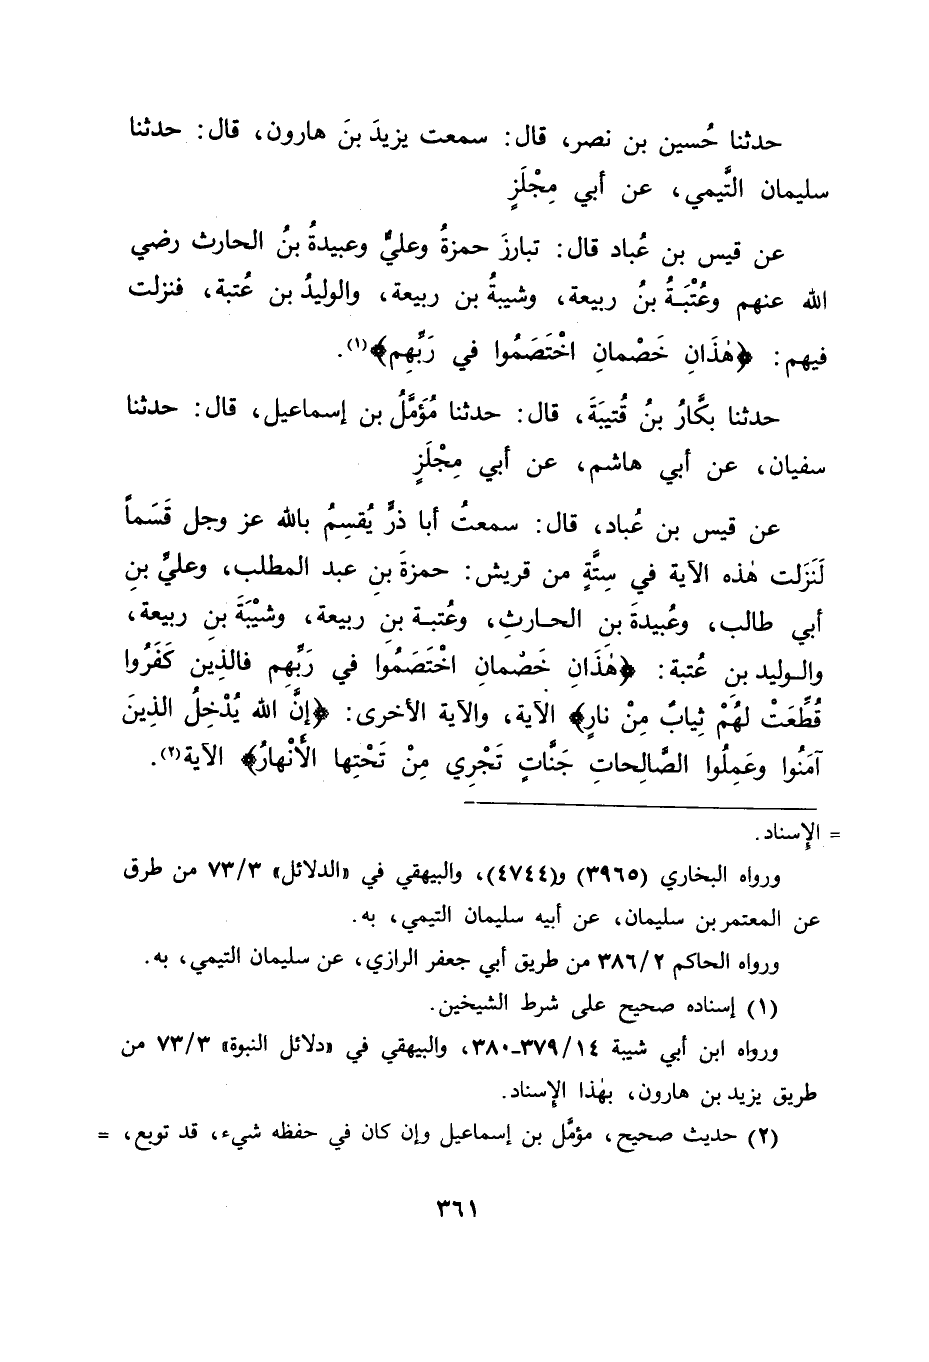 حدثنا حُسين بن نصر، قال: سمعت يزيدَ بنَ هارون، قال: حدثنا
سليمان التَّيمي، عن أبي مِجْلَزٍ
عن قيس بن عُباد قال: تبارزَ حمزةُ وعليٌّ وعبيدةُ بنُ الحارث رضي
الله عنهم وعُتْبَـةُ بنُ ربيعة، وشيبةُ بن ربيعة، والوليدُ بن عُتبة، فنزلت
فيهم: ﴿هٰذَانِ خَصْمانِ اخْتَصَمُوا في رَبِّهِم﴾(١).
حدثنا بكَّارُ بنُ قُتيبَةَ، قال: حدثنا مُؤمَّلُ بن إسماعيل، قال: حدثنا
سفيان، عن أبي هاشم، عن أبي مِجْلَزٍ
عن قيس بن عُباد، قال: سمعتُ أبا ذرٍّ يُقسِمُ بالله عز وجل قَسَماً
لَنَزَلت هٰذه الآية في سِتَّةٍ من قريش: حمزةَ بنِ عبد المطلب، وعليِّ بنِ
أبي طالب، وعُبيدةَ بنِ الحـارثِ، وعُتبـة بنِ ربيعة، وشَيْبَةَ بنِ ربيعة،
والـوليد بن عُتبة: ﴿هٰذَانِ خَصْمانِ اخْتَصَمُوا في رَبِّهِم فالذِين كَفَرُوا
قُطِّعَتْ لهُمْ ثِيابٌ مِنْ نارٍ﴾ الآية، والآية الأخرى: ﴿إنَّ الله يُدْخِلُ الذِينَ
آمَنُوا وعَمِلُوا الصَّالِحاتِ جَنَّاتٍ تَجْرِي مِنْ تَحْتِها الأَنْهارُ﴾ الآية(٢).
= الإسناد.
ورواه البخاري (٣٩٦٥) و(٤٧٤٤)، والبيهقي في «الدلائل» ٧٣/٣ من طرق
عن المعتمر بن سليمان، عن أبيه سليمان التيمي، به.
ورواه الحاكم ٣٨٦/٢ من طريق أبي جعفر الرازي، عن سليمان التيمي، به.
(١) إسناده صحيح على شرط الشيخين.
ورواه ابن أبي شيبة ٣٧٩/١٤-٣٨٠، والبيهقي في «دلائل النبوة» ٧٣/٣ من
طريق يزيد بن هارون، بهٰذا الإسناد.
(٢) حديث صحيح، مؤمَّل بن إسماعيل وإن كان في حفظه شيء، قد توبع، =
٣٦١